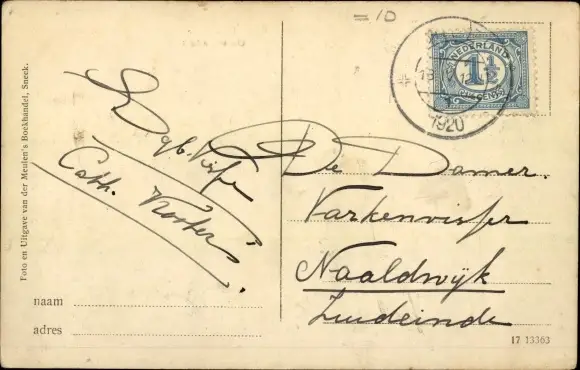 = 10
NEDERLAND
1½
CENT
1920
Foto en Uitgave van der Meulen's Boekhandel, Sneek.
Cath.
De Damer.
Varkenvisser
Naaldwyk
Zuideinde
naam
adres
17 13363